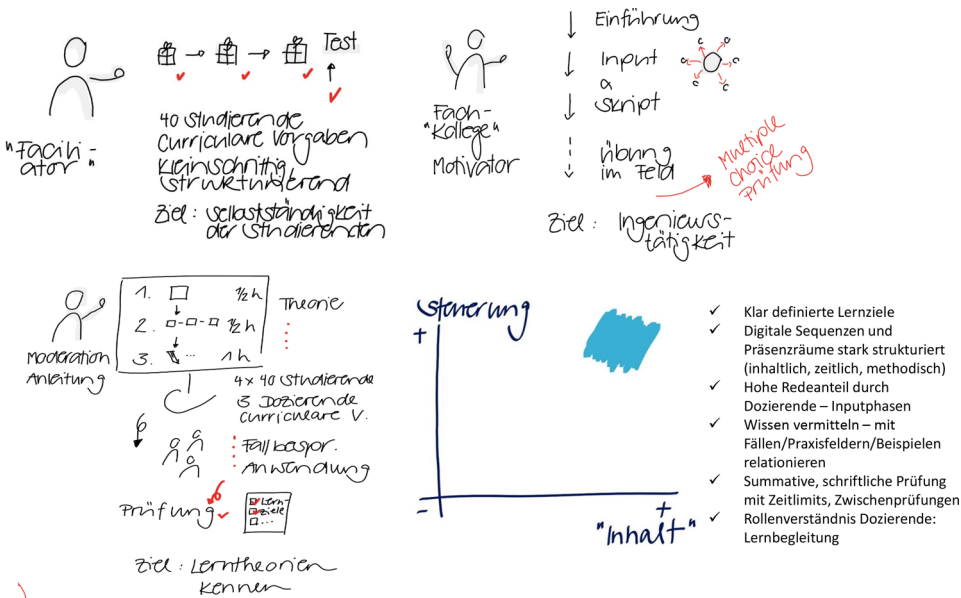 Test
"Facilit-
ator"
40 Studierende
curriculare Vorgaben
kleinschrittig
strukturierend
Ziel: Selbstständigkeit
der Studierenden
Fach-
"Kollege"
Motivator
Einführung
Input
a
Skript
Übung
im Feld
Multiple
choice
Prüfung
Ziel: Ingenieurs-
tätigkeit
Moderation
Anleitung
1. ½ h
2. ½ h
3. ... 1 h
Theorie
4 x 40 Studierende
3 Dozierende
curriculare V.
Fallbespr.
Anwendung
Prüfung
Lern-
ziele
...
Ziel: Lerntheorien
kennen
Steuerung
+
-
+
"Inhalt"
✓ Klar definierte Lernziele
✓ Digitale Sequenzen und
Präsenzräume stark strukturiert
(inhaltlich, zeitlich, methodisch)
✓ Hohe Redeanteil durch
Dozierende – Inputphasen
✓ Wissen vermitteln – mit
Fällen/Praxisfeldern/Beispielen
relationieren
✓ Summative, schriftliche Prüfung
mit Zeitlimits, Zwischenprüfungen
✓ Rollenverständnis Dozierende:
Lernbegleitung